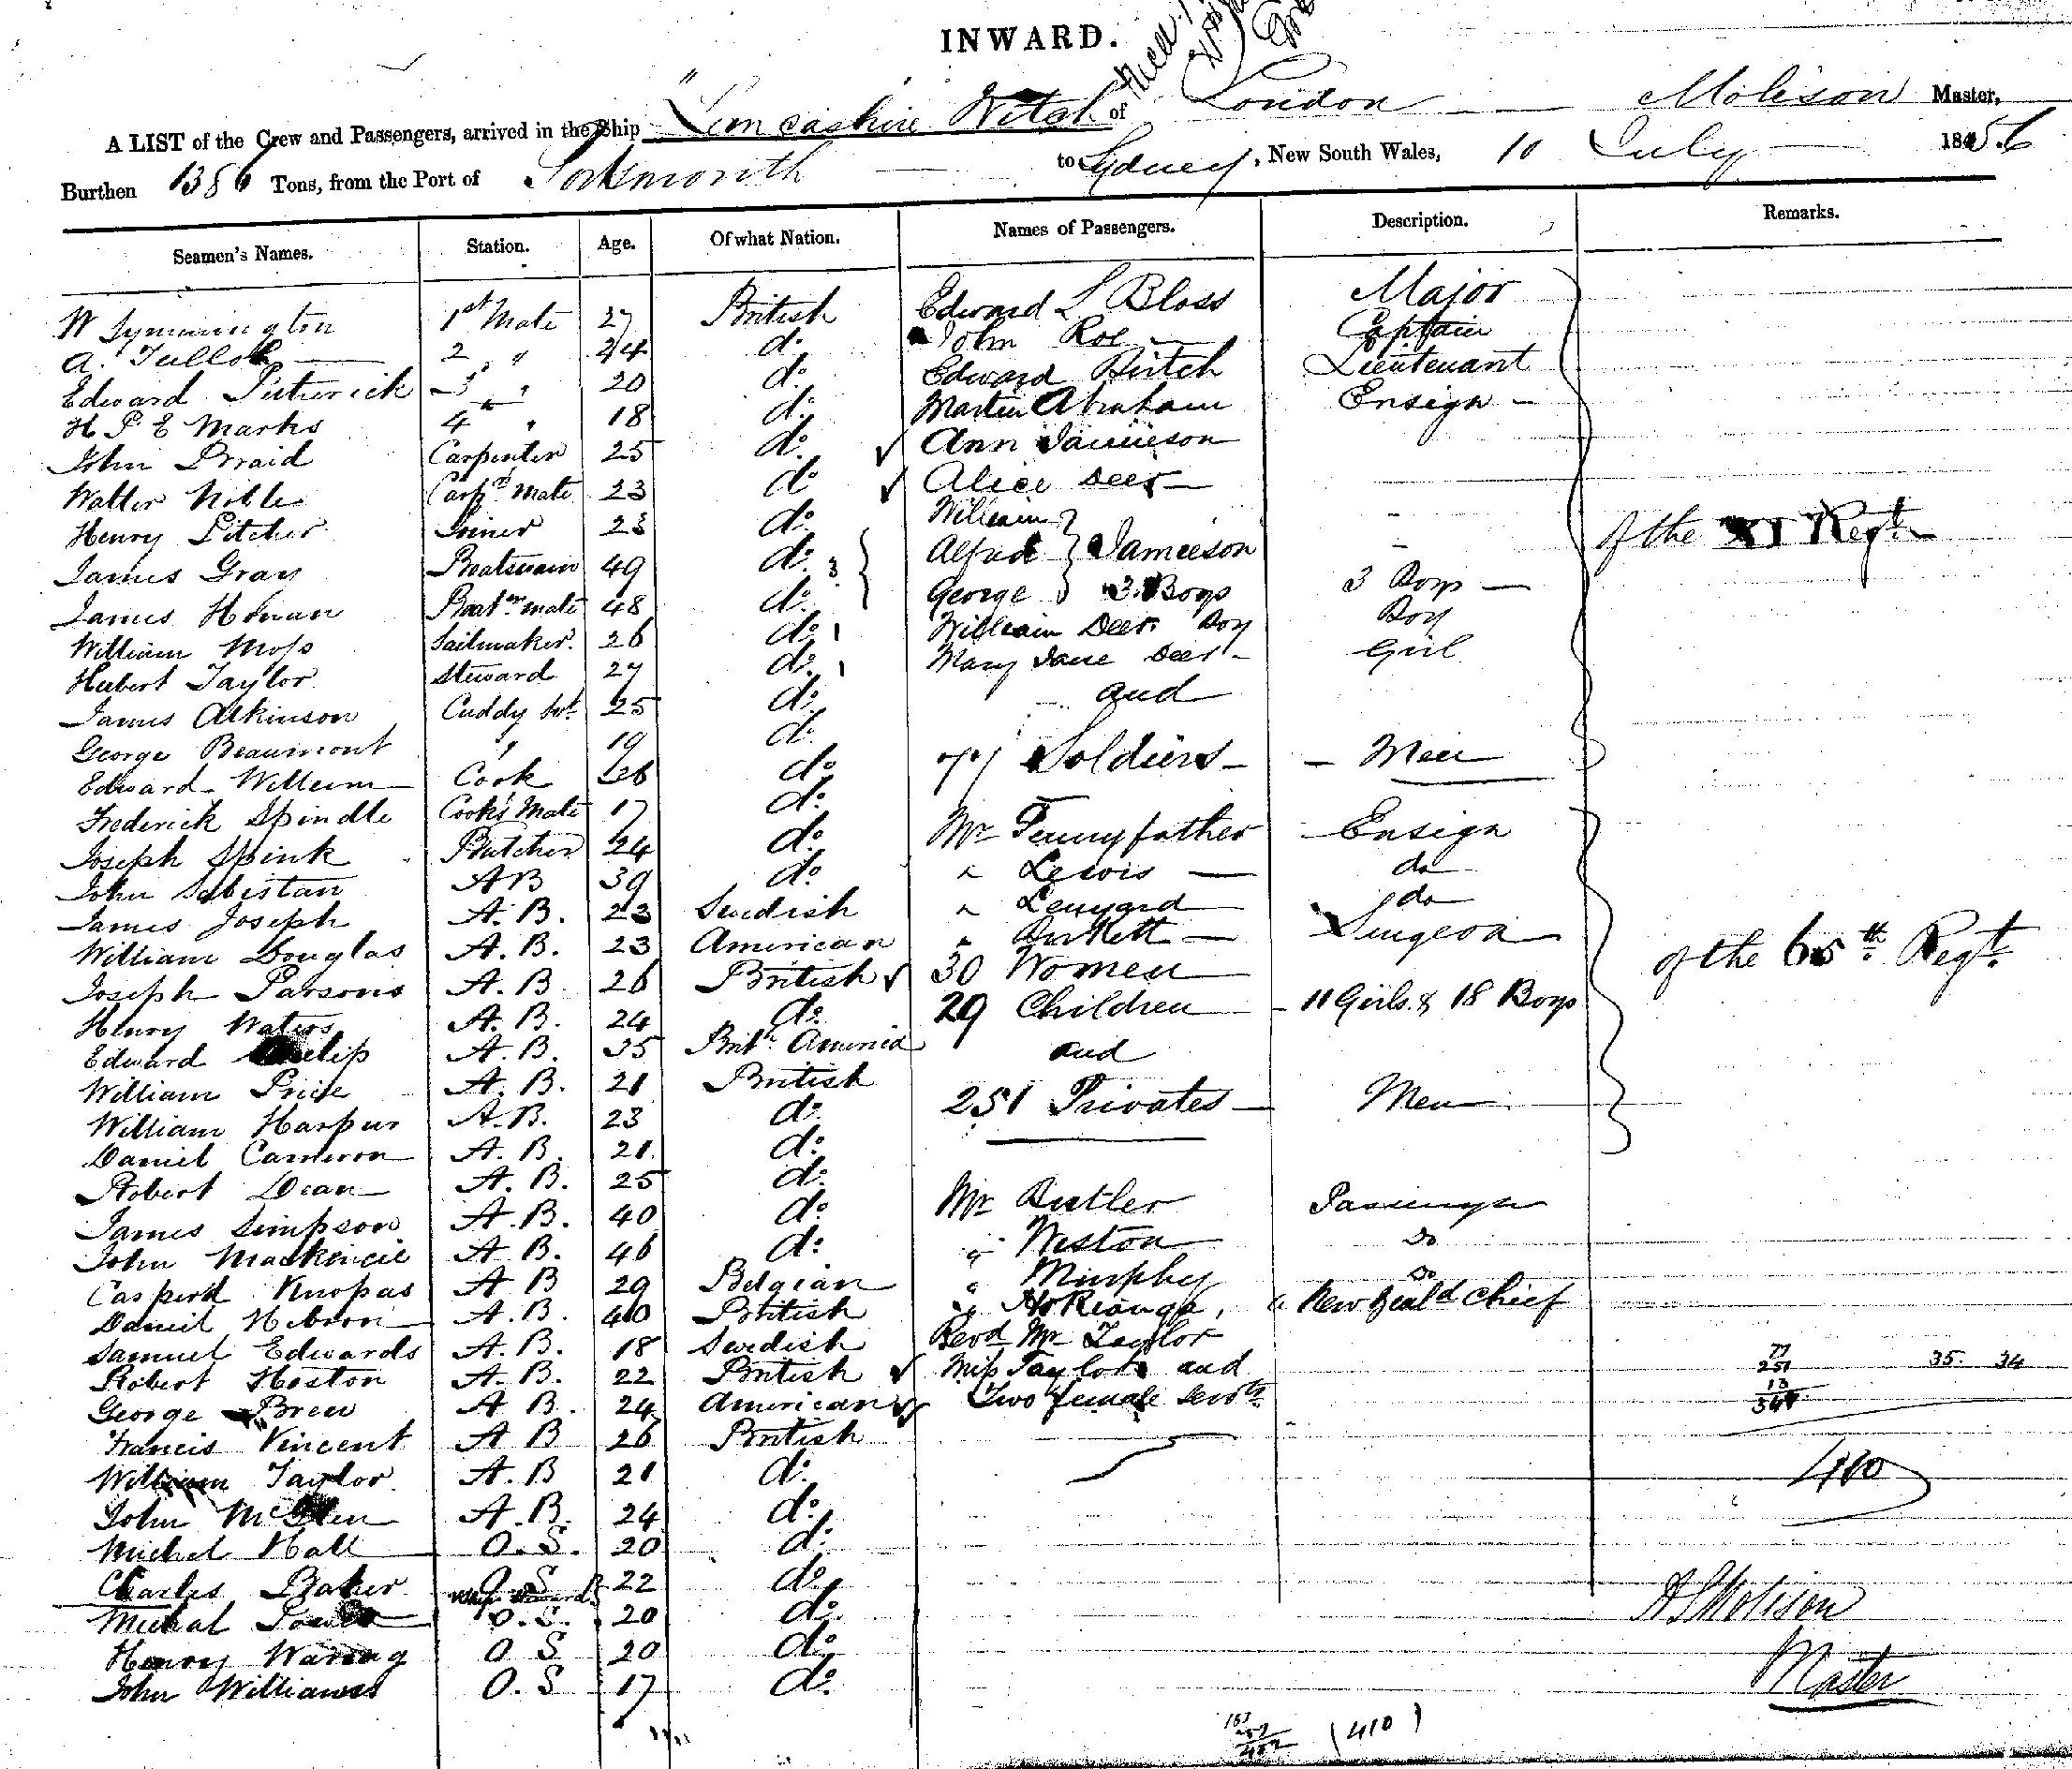 INWARD.
A LIST of the Crew and Passengers, arrived in the Ship "Lancashire Witch of London Molison Master,
Burthen 1386 Tons, from the Port of Portsmouth to Sydney, New South Wales, 10 July 1856
Seamen's Names. Station. Age. Of what Nation. Names of Passengers. Description. Remarks.
W Symmington 1st Mate 27 British Edward L Bloss Major
A. Tulloh 2 " 24 do John Roe Captain
Edward Petherick 3 " 20 do Edward Birtch Lieutenant
H P E Marks 4 " 18 do Martin Abraham Ensign
John Braid Carpenter 25 do Ann Jamieson
Walter Noble Carpr Mate 23 do Alice Deer
Henry Pitcher Joiner 23 do William
James Gray Boatswain 49 do 3 Alfred Jamieson of the XI Regt
James Honan Boatsn mate 48 do George 3 Boys 3 Boys
William Moss Sailmaker 26 do 1 William Deer Boy Boy
Herbert Taylor Steward 27 do 1 Mary Jane Deer Girl
James Atkinson Cuddy Svt 25 do and
George Beaumont " 19 do
Edward Willeum Cook 26 do 77 Soldiers Men
Frederick Spindle Cook's Mate 17 do
Joseph Spink Butcher 24 do Mr Pennyfather Ensign
John Sebistan AB 39 do " Lewis do
James Joseph A.B. 23 Swedish " Lenyard do
William Douglas A.B. 23 American " Burkett Surgeon
Joseph Parsons A.B. 26 British 30 Women of the 65th Regt
Henry Waters A.B. 24 do 29 Children 11 Girls & 18 Boys
Edward A.B. 35 Brith America and
William Price A.B. 21 British
William Harpur A.B. 23 do 251 Privates Men
Daniel Cameron A.B. 21 do
Robert Dean A.B. 25 do
James Simpson A.B. 40 do Mr Butler Passenger
John Mackencie A.B. 46 do " Weston do
Casperd Knopas A B 29 Belgian " Murphy do
Daniel Hebron A.B. 40 British " Hokianga, a New Zeald Chief
Samuel Edwards A.B. 18 Swedish Revd Mr Taylor
Robert Hoston A.B. 22 British Miss Taylor and 77 35. 34
George Brew A B. 24 American Two female servts 251
Francis Vincent A B 26 British 13
William Taylor A.B 21 do 341
John A.B. 24 do 410
Michel Hall O.S. 20 do
Charles Baker O S 22 do
Michal O.S. 20 do A S Molison
Henry Waring O S 20 do Master
John Williams O.S 17 do
(410)